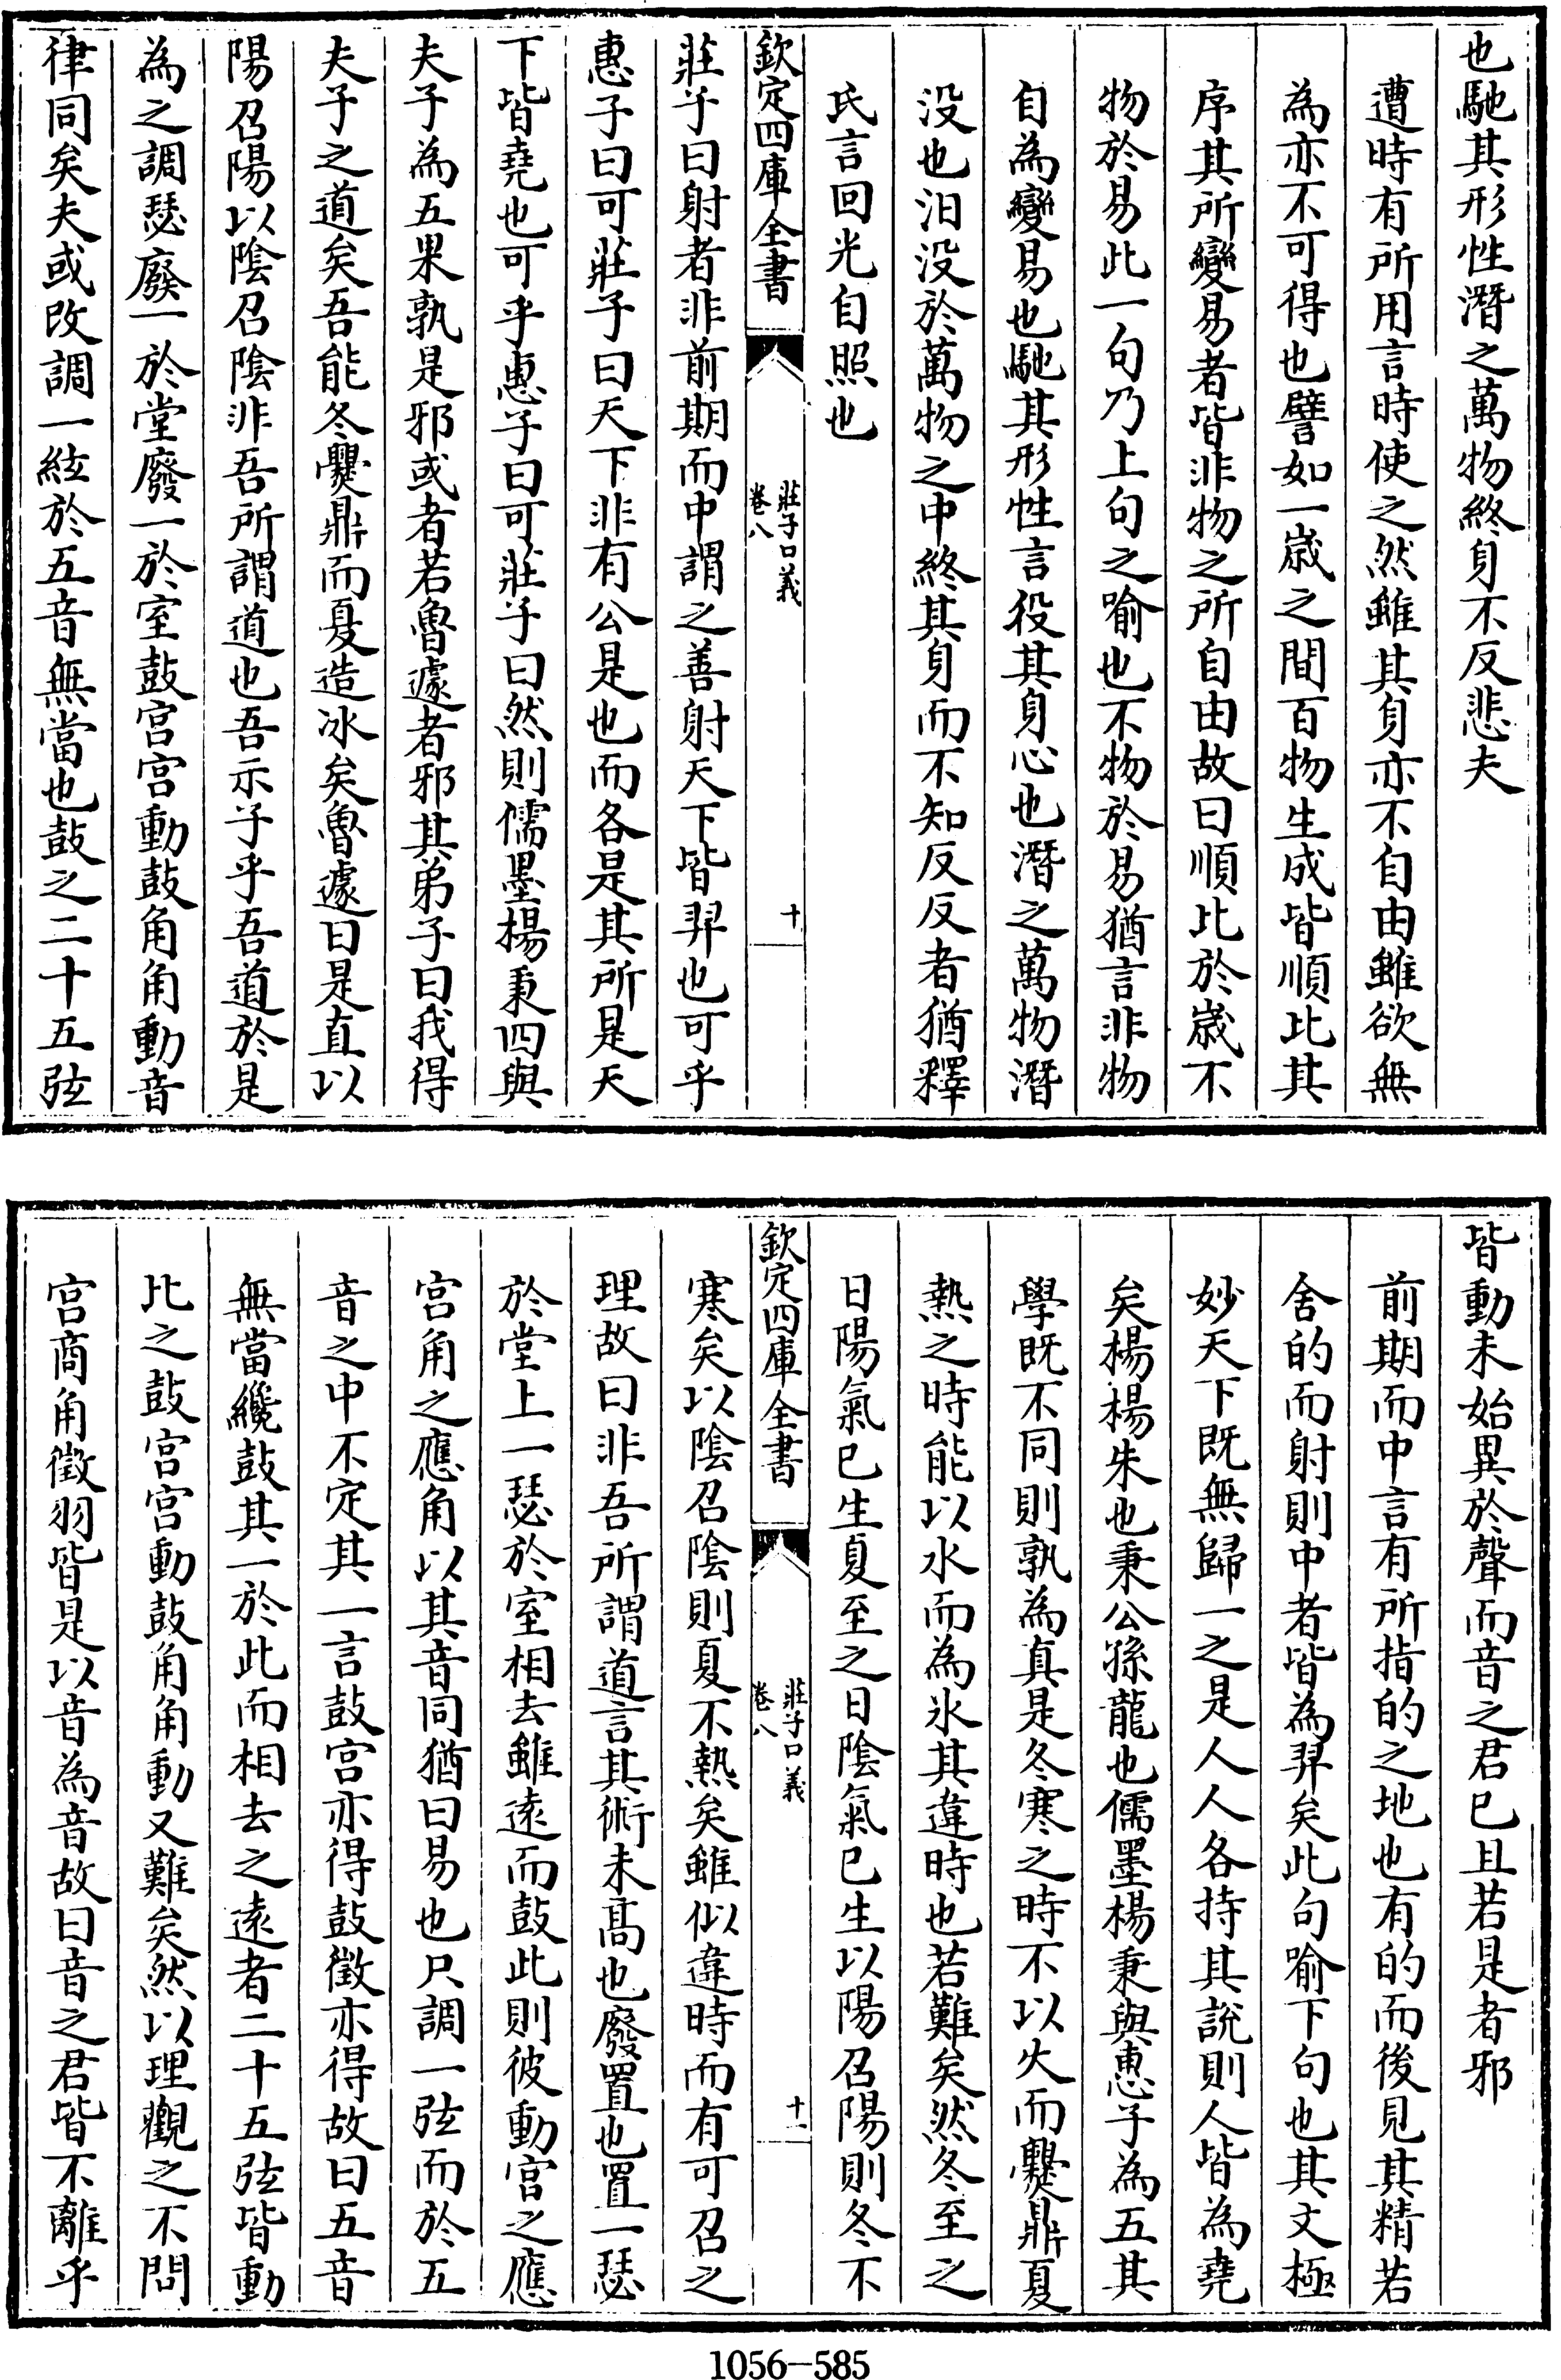 也馳其形性潛之萬物終身不反悲夫
遭時有所用言時使之然雖其身亦不自由雖欲無
為亦不可得也譬如一歳之間百物生成皆順比其
序其所變易者皆非物之所自由故曰順比於歳不
物於易此一句乃上句之喻也不物於易猶言非物
自為變易也馳其形性言役其身心也潛之萬物潛
没也汨没於萬物之中終其身而不知反反者猶釋
氏言回光自照也
欽定四庫全書
莊子口義
卷八
十
莊子曰射者非前期而中謂之善射天下皆羿也可乎
惠子曰可莊子曰天下非有公是也而各是其所是天
下皆堯也可乎惠子曰可莊子曰然則儒墨楊秉四與
夫子為五果孰是邪或者若魯遽者邪其弟子曰我得
夫子之道矣吾能冬爨鼎而夏造冰矣魯遽曰是直以
陽召陽以陰召陰非吾所謂道也吾示子乎吾道於是
為之調瑟廢一於堂廢一於室鼓宮宮動鼓角角動音
律同矣夫或改調一絃於五音無當也鼓之二十五弦
皆動未始異於聲而音之君已且若是者邪
前期而中言有所指的之地也有的而後見其精若
舍的而射則中者皆為羿矣此句喻下句也其文極
妙天下既無歸一之是人人各持其說則人皆為堯
矣楊楊朱也秉公孫龍也儒墨楊秉與惠子為五其
學既不同則孰為真是冬寒之時不以火而爨鼎夏
熱之時能以水而為氷其違時也若難矣然冬至之
日陽氣已生夏至之日陰氣已生以陽召陽則冬不
欽定四庫全書
莊子口義
卷八
十一
寒矣以陰召陰則夏不熱矣雖似違時而有可召之
理故曰非吾所謂道言其術未髙也廢置也置一瑟
於堂上一瑟於室相去雖逺而鼓此則彼動宮之應
宮角之應角以其音同猶曰易也只調一弦而於五
音之中不定其一言鼓宮亦得鼓徵亦得故曰五音
無當纔鼓其一於此而相去之逺者二十五弦皆動
比之鼓宮宮動鼓角角動又難矣然以理觀之不問
宮商角徵羽皆是以音為音故曰音之君皆不離乎
1056-585